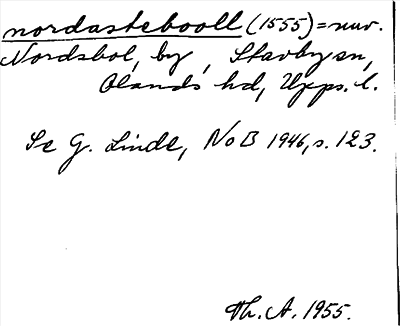 nordastebooll (1555) = nuv.
Nordsbol, by, Stavby sn,
Olands hd, Upps. l.
Se G. Linde, NoB 1946, s. 123.
Th. A. 1955.